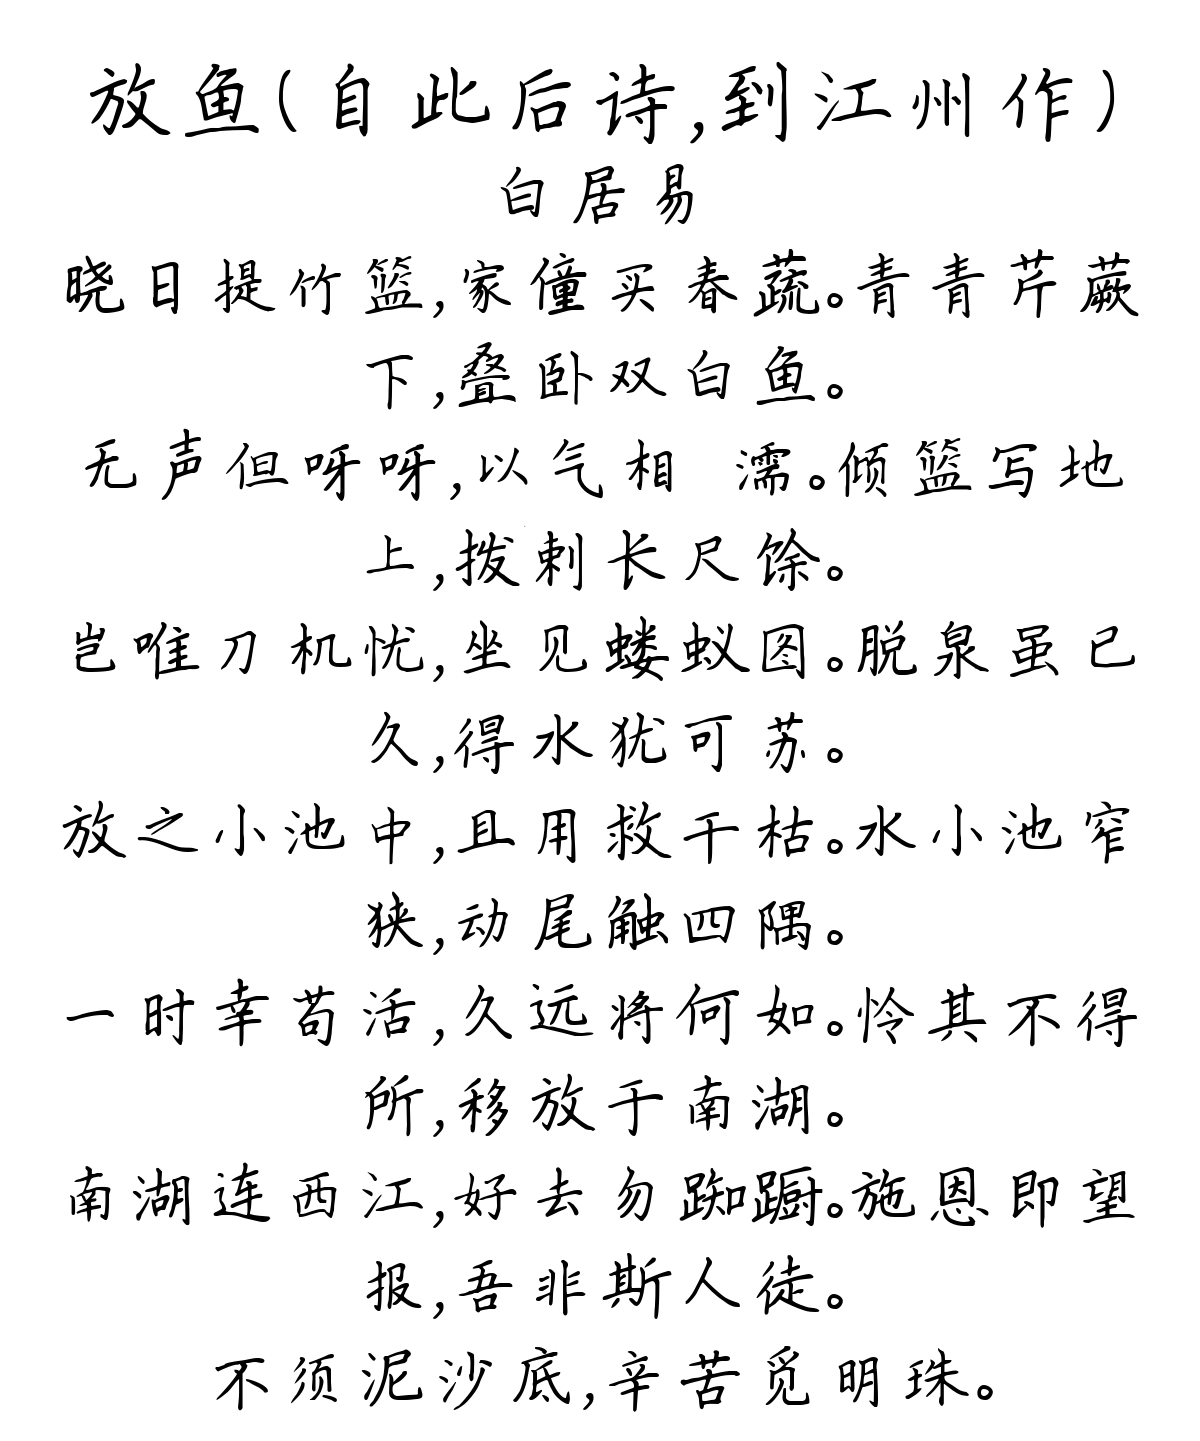 放鱼(自此后诗,到江州作)
白居易
晓日提竹篮,家僮买春蔬。青青芹蕨
下,叠卧双白鱼。
无声但呀呀,以气相 濡。倾篮写地
上,拨剌长尺馀。
岂唯刀机忧,坐见蝼蚁图。脱泉虽已
久,得水犹可苏。
放之小池中,且用救干枯。水小池窄
狭,动尾触四隅。
一时幸苟活,久远将何如。怜其不得
所,移放于南湖。
南湖连西江,好去勿踟蹰。施恩即望
报,吾非斯人徒。
不须泥沙底,辛苦觅明珠。